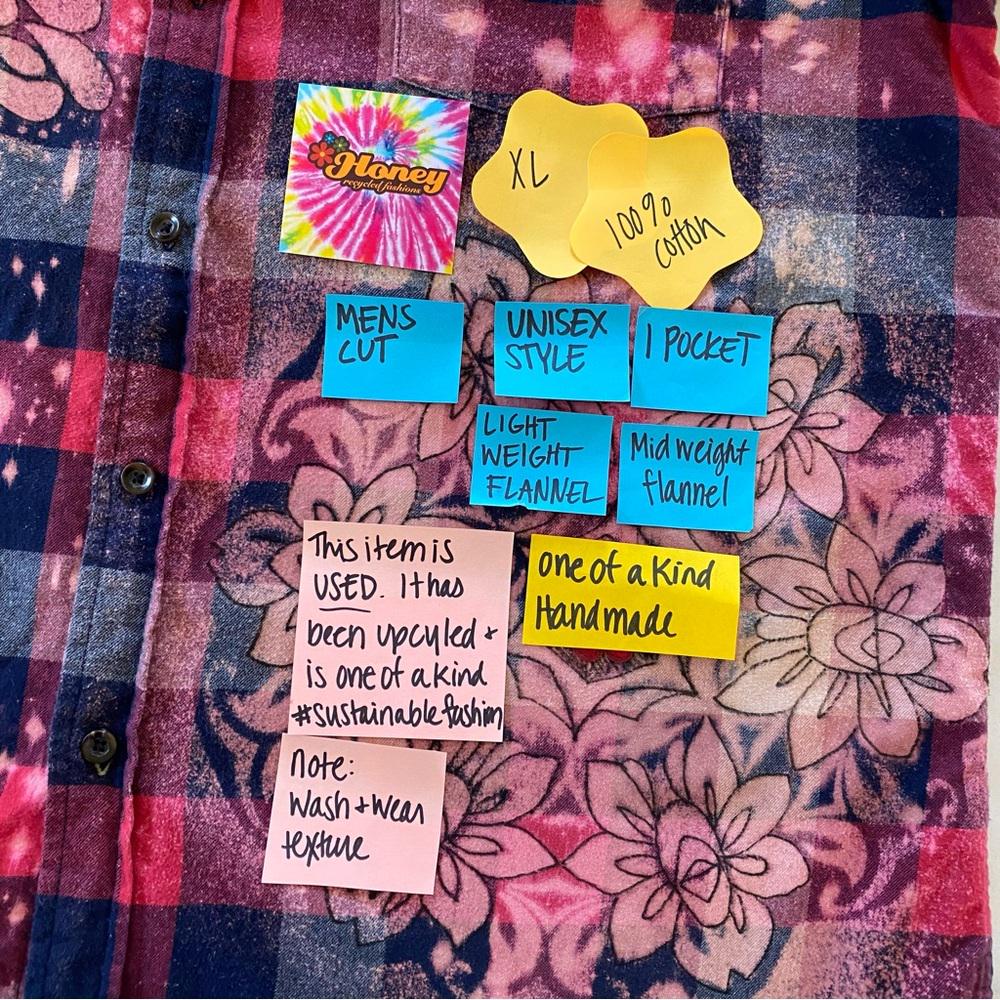 Honey
recycled fashions
XL
100%
cotton
MENS
CUT
UNISEX
STYLE
1 POCKET
LIGHT
WEIGHT
FLANNEL
Mid weight
flannel
This item is
USED. It has
been upcyled +
is one of a kind
#sustainablefashion
one of a kind
Handmade
note:
wash + wear
texture